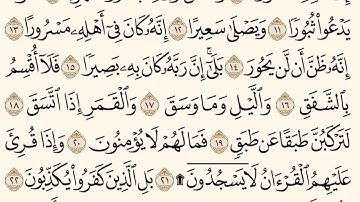 يَدْعُوا۟ ثُبُورًا ١١ وَيَصْلَىٰ سَعِيرًا ١٢ إِنَّهُۥ كَانَ فِىٓ أَهْلِهِۦ مَسْرُورًا ١٣
إِنَّهُۥ ظَنَّ أَن لَّن يَحُورَ ١٤ بَلَىٰٓ إِنَّ رَبَّهُۥ كَانَ بِهِۦ بَصِيرًا ١٥ فَلَآ أُقْسِمُ
بِٱلشَّفَقِ ١٦ وَٱلَّيْلِ وَمَا وَسَقَ ١٧ وَٱلْقَمَرِ إِذَا ٱتَّسَقَ ١٨
لَتَرْكَبُنَّ طَبَقًا عَن طَبَقٍ ١٩ فَمَا لَهُمْ لَا يُؤْمِنُونَ ٢٠ وَإِذَا قُرِئَ
عَلَيْهِمُ ٱلْقُرْءَانُ لَا يَسْجُدُونَ ۩ ٢١ بَلِ ٱلَّذِينَ كَفَرُوا۟ يُكَذِّبُونَ ٢٢